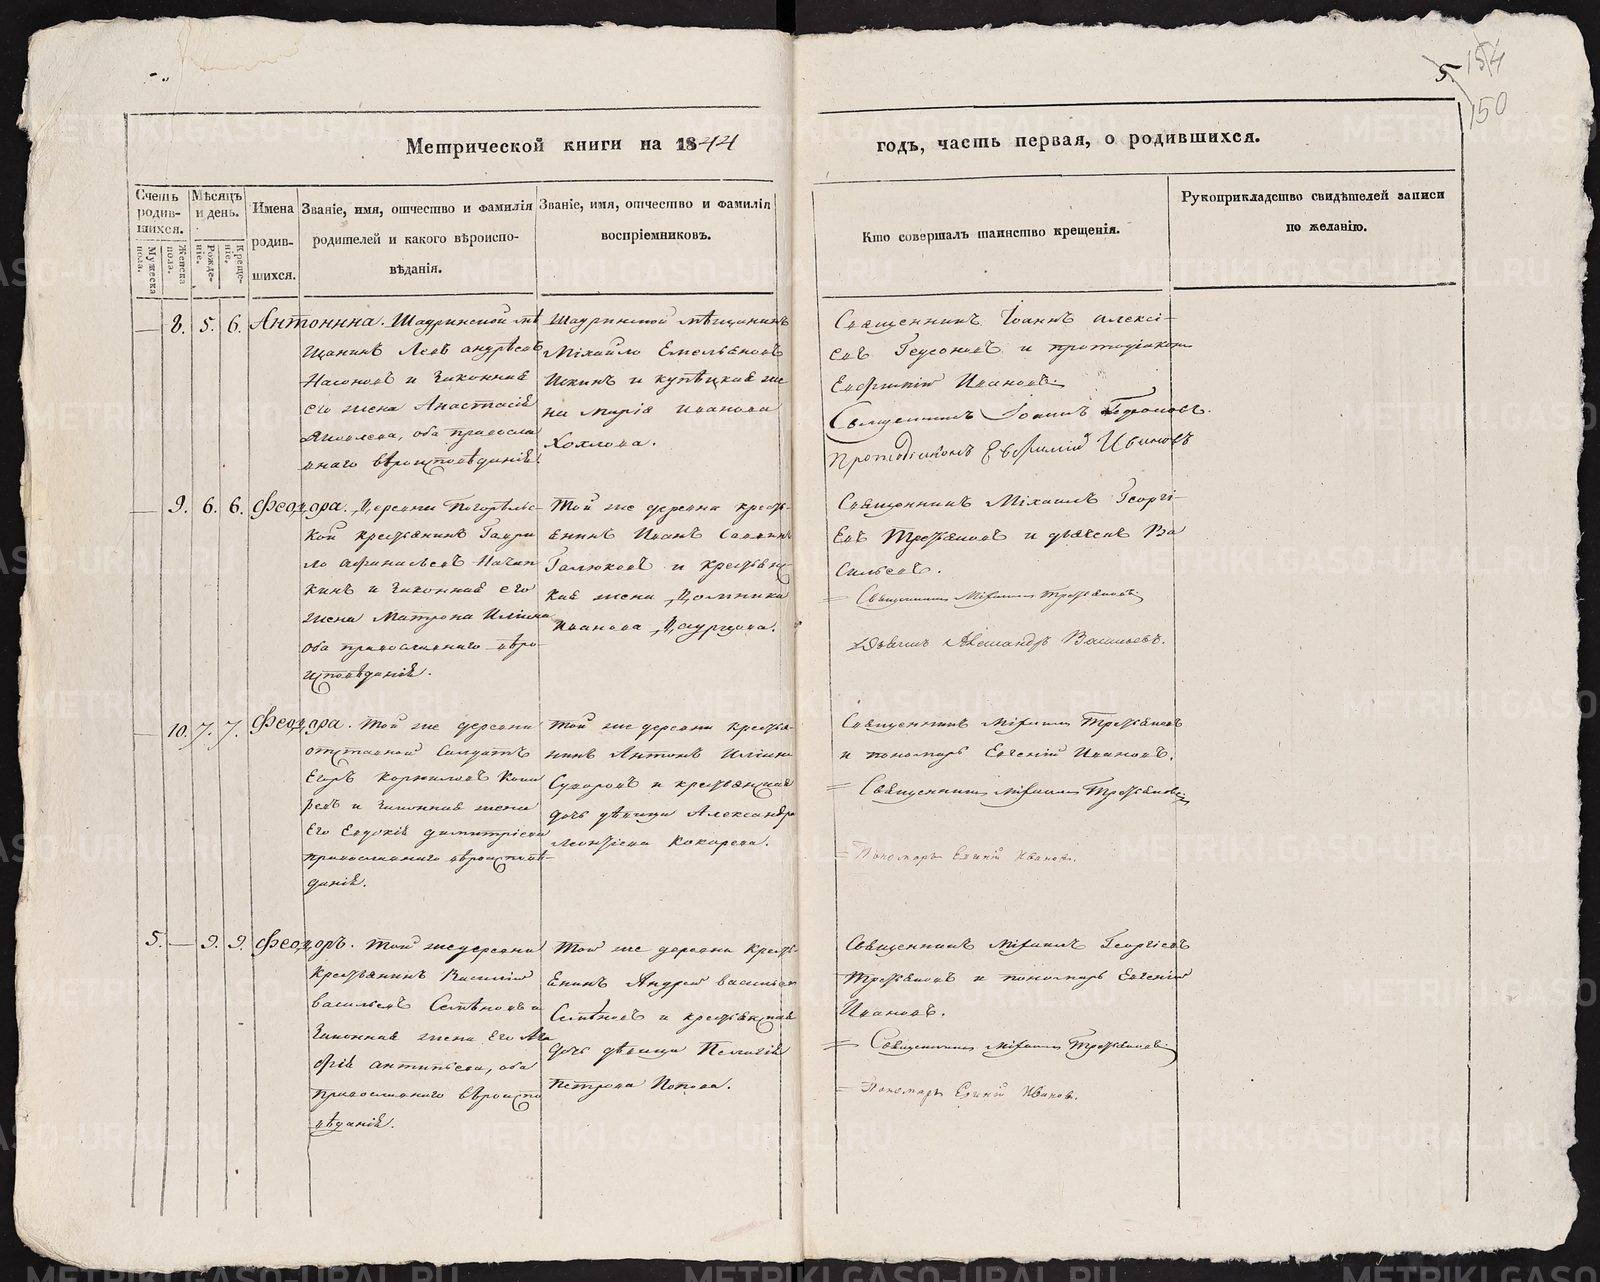 5.
154
150
Метрической книги на 1844
годъ, часть первая, о родившихся.
Счетъ родив-шихся.
Мужеска пола.
Женска пола.
Мѣсяцъ и день.
Рожде-ніе.
Креще-ніе.
Имена родив-шихся.
Званіе, имя, отчество и фамилія
родителей и какого вѣроиспо-
вѣданія.
Званіе, имя, отчество и фамилія
воспріемниковъ.
Кто совершалъ таинство крещенія.
Рукоприкладство свидѣтелей записи
по желанію.
— 8. 5. 6. Антонина.
Шадринской мѣ
щанинъ Левъ Андрѣевъ
Насоновъ и законная
его жена Анастасія
Яковлева, оба православ
наго вѣроисповѣданія.
Шадринской мѣщанинъ
Михайло Емельяновъ
и купѣцкая же
на Марія Иванова
Хохлова.
Священникъ Іоаннъ Алексі-
евъ и протодіаконъ
Евфимій Ивановъ.
Священникъ Іоаннъ
Протодіаконъ Евфимій Ивановъ
— 9. 6. 6. Феодора.
Деревни Погорѣльс-
кой крестьянинъ Гаври
ло Афанасьевъ
и законная его
жена Матрона Ильина
оба православнаго вѣро-
исповѣданія.
Той же деревни кресть-
янинъ Иванъ Саввинъ
и крестьянс
кая жена Домника
Иванова
Священникъ Михаилъ Георгі-
евъ Третьяковъ и дьячекъ Ва
сильевъ.
= Священникъ Михаилъ Третьяковъ
Дьячекъ Александръ Васильевъ.
— 10. 7. 7. Феодора.
Той же деревни
отставной солдатъ
Егоръ Корниловъ Кока
ревъ и законная жена
его Евдокія Димитріева
православнаго вѣроисповѣ-
данія.
Той же деревни крестья-
нинъ Антонъ Ильинъ
Суворовъ и крестьянская
дочь дѣвица Александра
Леонтіева Кокарева.
Священникъ Михаилъ Третьяковъ
и пономарь Евгеній Ивановъ.
= Священникъ Михаилъ Третьяковъ
= Пономарь Евгеній Ивановъ.
5. — 9. 9. Феодоръ.
Той же деревни
крестьянинъ Василій
Васильевъ Семѣновъ и
законная жена его Ага
фія Антипьева, оба
православнаго вѣроиспо
вѣданія.
Той же деревни кресть-
янинъ Андрей Васильевъ
Семѣновъ и крестьянская
дочь дѣвица Пелагія
Петрова Попова.
Священникъ Михаилъ Георгіевъ
Третьяковъ и пономарь Евгеній
Ивановъ.
= Священникъ Михаилъ Третьяковъ
= Пономарь Евгеній Ивановъ.
METRIKI.GASO-URAL.RU